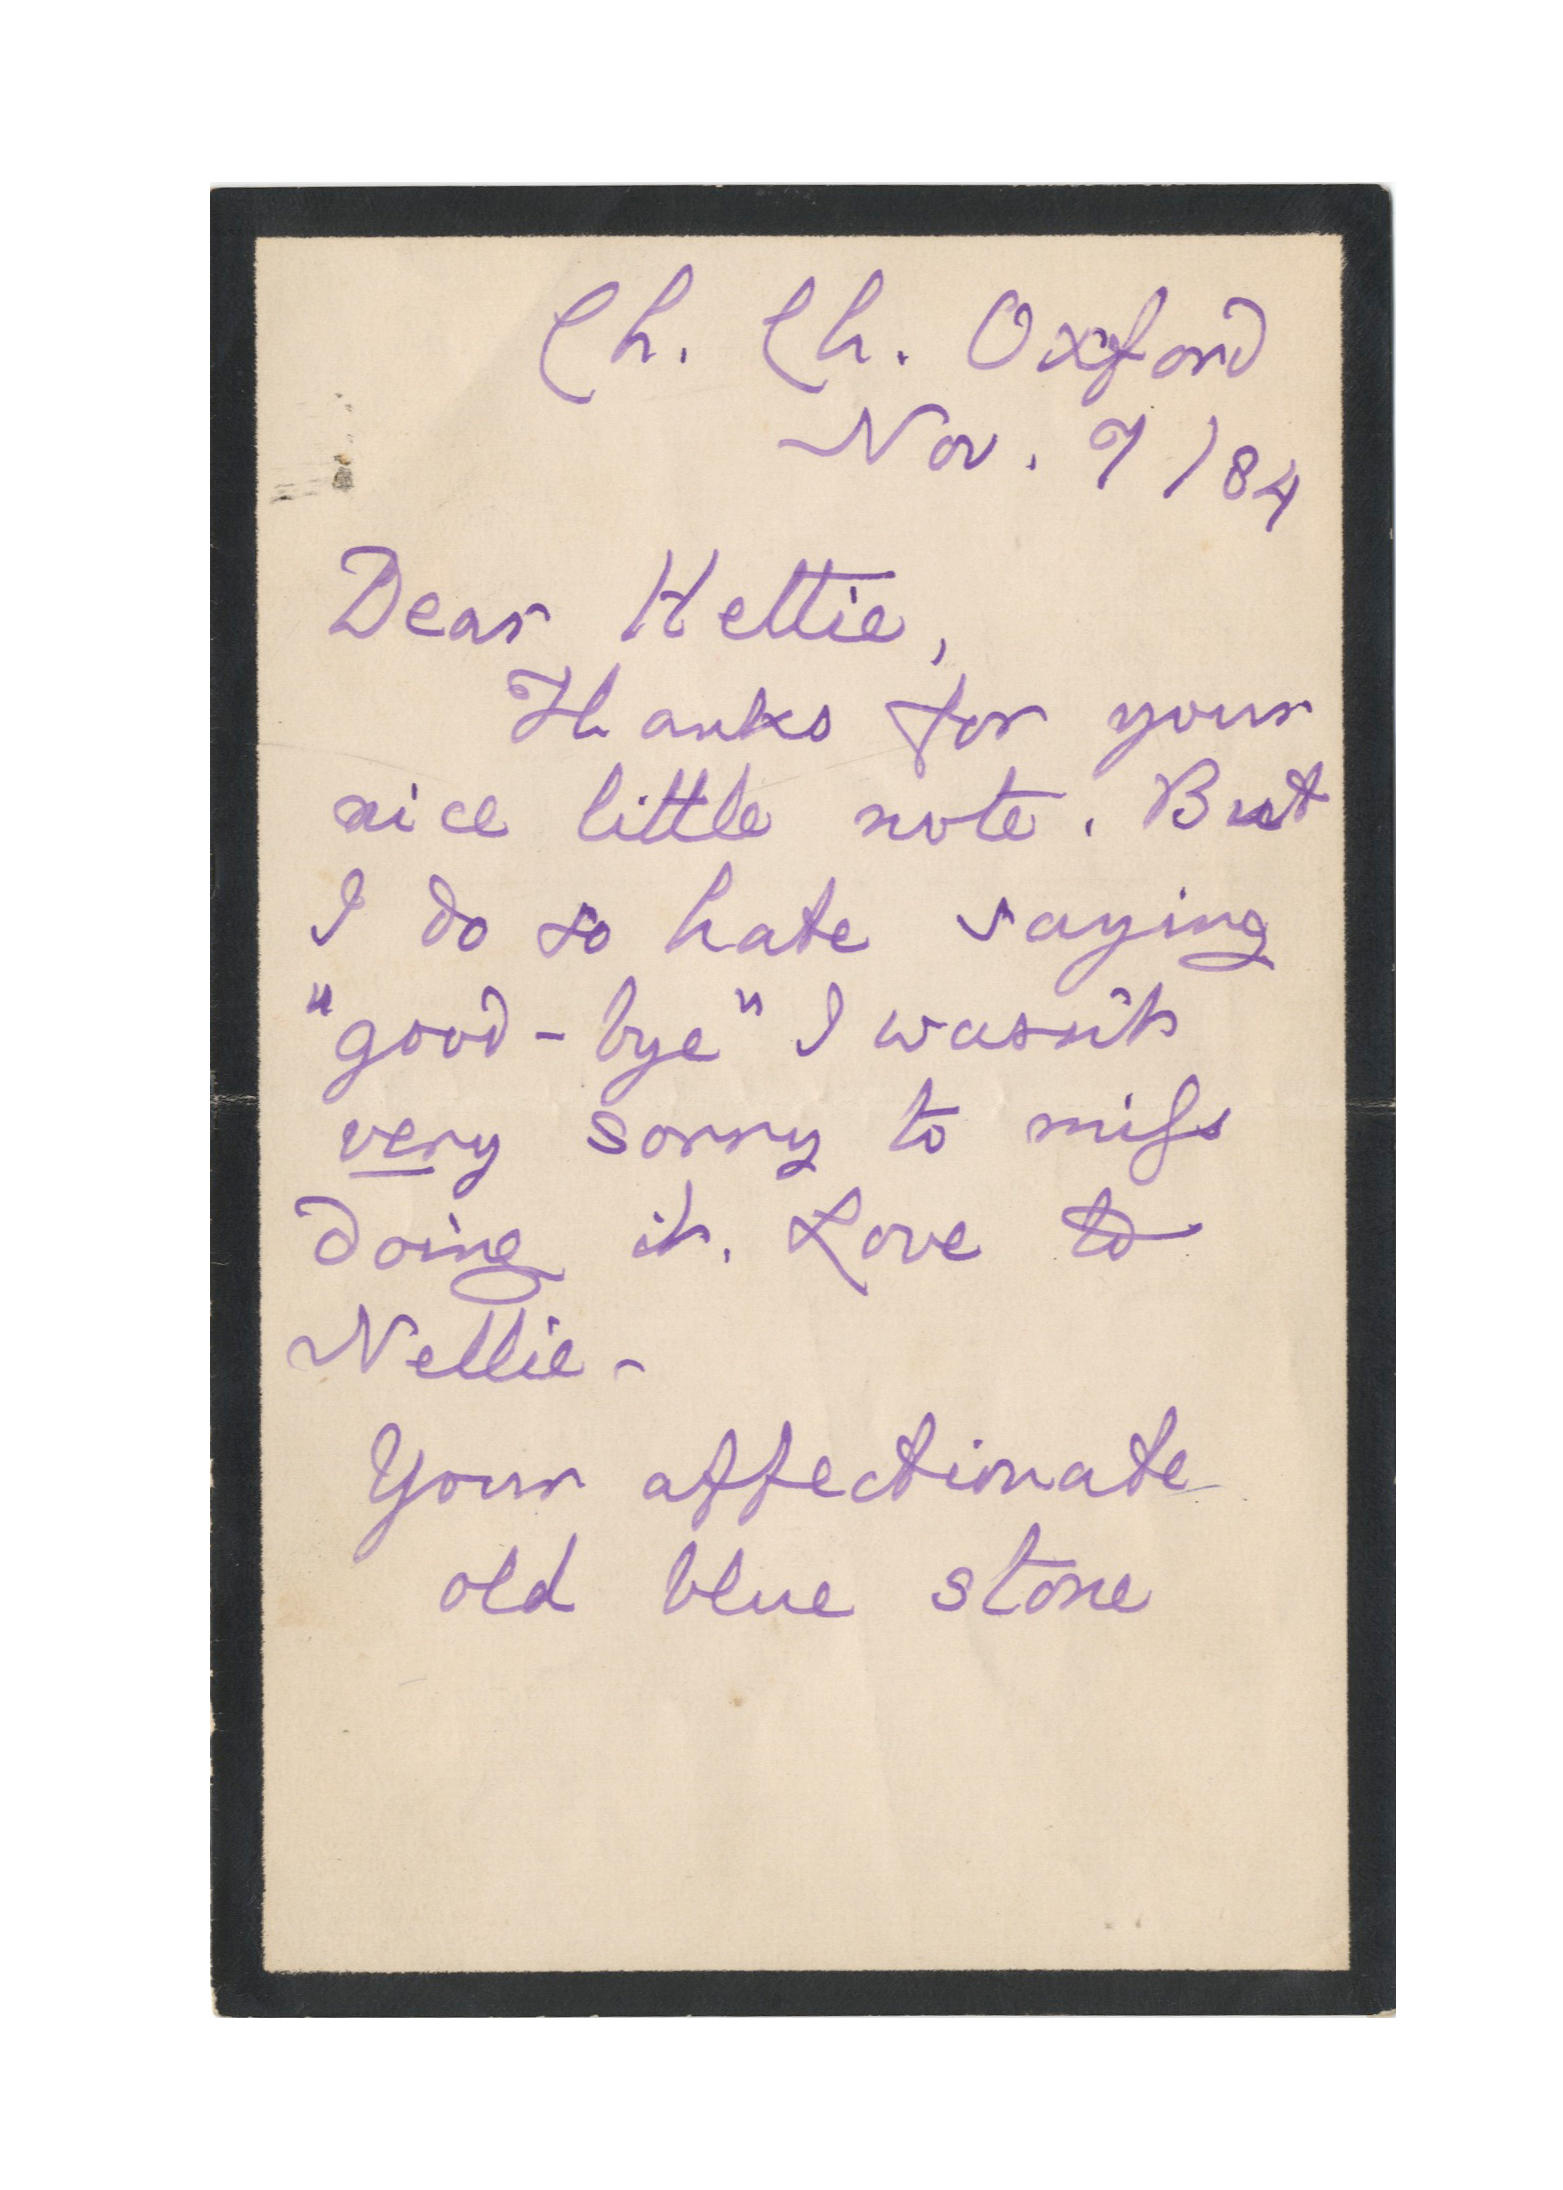 Ch. Ch. Oxford
Nov. 7/84
Dear Hettie,
Thanks for your
nice little note. But
I do so hate saying
"good-bye" I wasn't
very sorry to miſs
doing it. Love to
Nellie-
Your affectionate
old blue stone